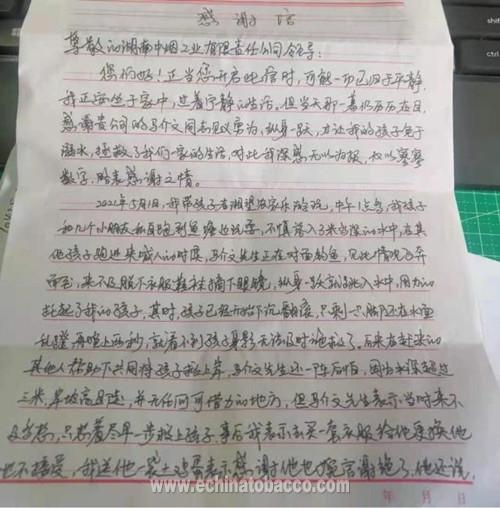 感谢信
尊敬的湖南中烟工业有限责任公司领导：
您们好！正当您开启此信时，可能一切已归于平静，
我正安坐于家中，过着宁静的生活。但当天那一幕仍历历在目，
感谢贵公司的易介文同志见义勇为，纵身一跃，力让我的孩子免于
溺水，拯救了我们一家的生活，对此我深感无以为报，仅以寥寥
数字，略表感谢之情。
2021年5月1日，我带孩子去湘望农家乐吃饭，中午1点多，我孩子
和几个小朋友私自跑到鱼塘边玩耍，不慎落入3米多深的水中，在其
他孩子跑进来喊人的时候，易介文先生正在对面钓鱼，见此情况飞奔
而至，来不及脱下衣服鞋袜摘下眼镜，纵身一跃就跳入水中，用力的
托起了我的孩子，其时，孩子已经开始下沉翻滚，只剩一只脚还在水面
乱蹬，再晚上两秒，就看不到孩子身影无法及时施救了。后来在赶来的
其他人帮助下共同将孩子救上岸，易介文先生还一阵后怕，因为水深超过
三米，岸坡高且陡，并无任何可借力的地方，但易介文先生表示当时来不
及多想，只想着尽早一步救上孩子。事后我表示去买一套衣服给他更换他
也不接受，我送他一袋土鸡蛋表示感谢他也婉言谢绝了，他还说，
www.echinatobacco.com
年 月 日
ctrl